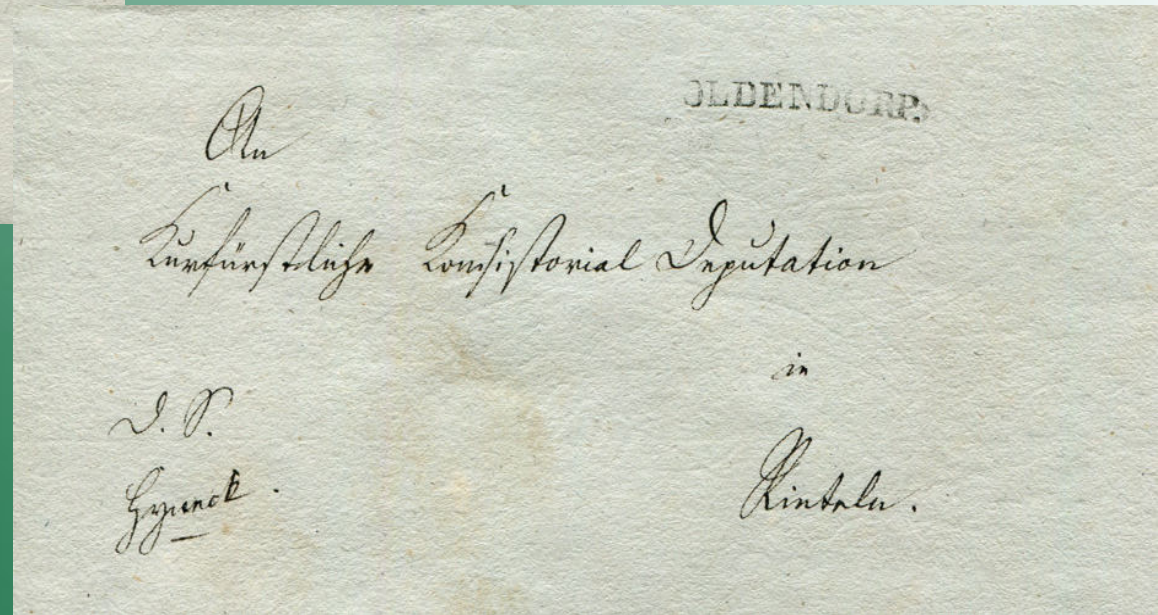 OLDENDORP.
An
Kurfürstliche Konsistorial Deputation
in
D. S.
Rinteln.